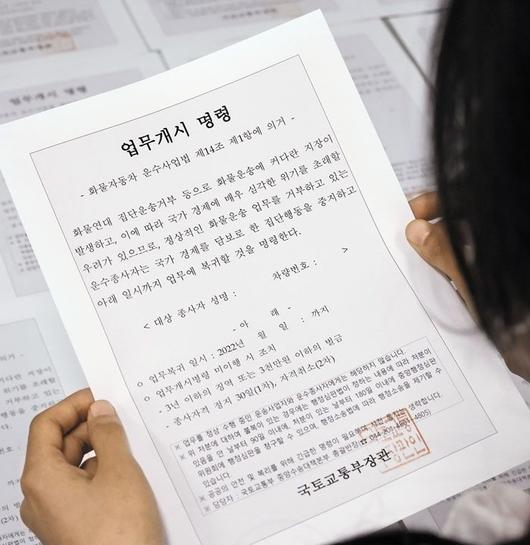 업무개시 명령
- 화물자동차 운수사업법 제14조 제1항에 의거 -
화물연대 집단운송거부 등으로 화물운송에 커다란 지장이
발생하고, 이에 따라 국가 경제에 매우 심각한 위기를 초래할
우려가 있으므로, 정상적인 화물운송 업무를 거부하고 있는
운수종사자는 국가 경제를 담보로 한 집단행동을 중지하고
아래 일시까지 업무에 복귀할 것을 명령한다.
< 대상 종사자 성명 : 차량번호 : >
- 아 래 -
○ 업무복귀 일시 : 2022년 월 일 : 까지
○ 업무개시명령 미이행 시 조치
- 3년 이하의 징역 또는 3천만원 이하의 벌금
- 종사자격 정지 30일(1차), 자격취소(2차)
※ 업무를 정상 수행 중인 운송사업자와 운수종사자에게는 해당하지 않습니다.
※ 위 처분에 대하여 불복이 있는 경우에는 행정심판법이 정하는 내용에 따라 처분이
있음을 안 날부터 90일 이내에, 처분이 있는 날부터 180일 이내에 중앙행정심판
위원회에 행정심판을 청구할 수 있으며, 행정소송법에 따라 행정소송을 제기할 수
있습니다.
※ 공공의 안전 및 복리를 위해 긴급한 명령이 필요해 생략합니다.
※ 담당자 : 국토교통부 중앙수송대책본부 총괄반장
국토교통부장관
업무개시 명령